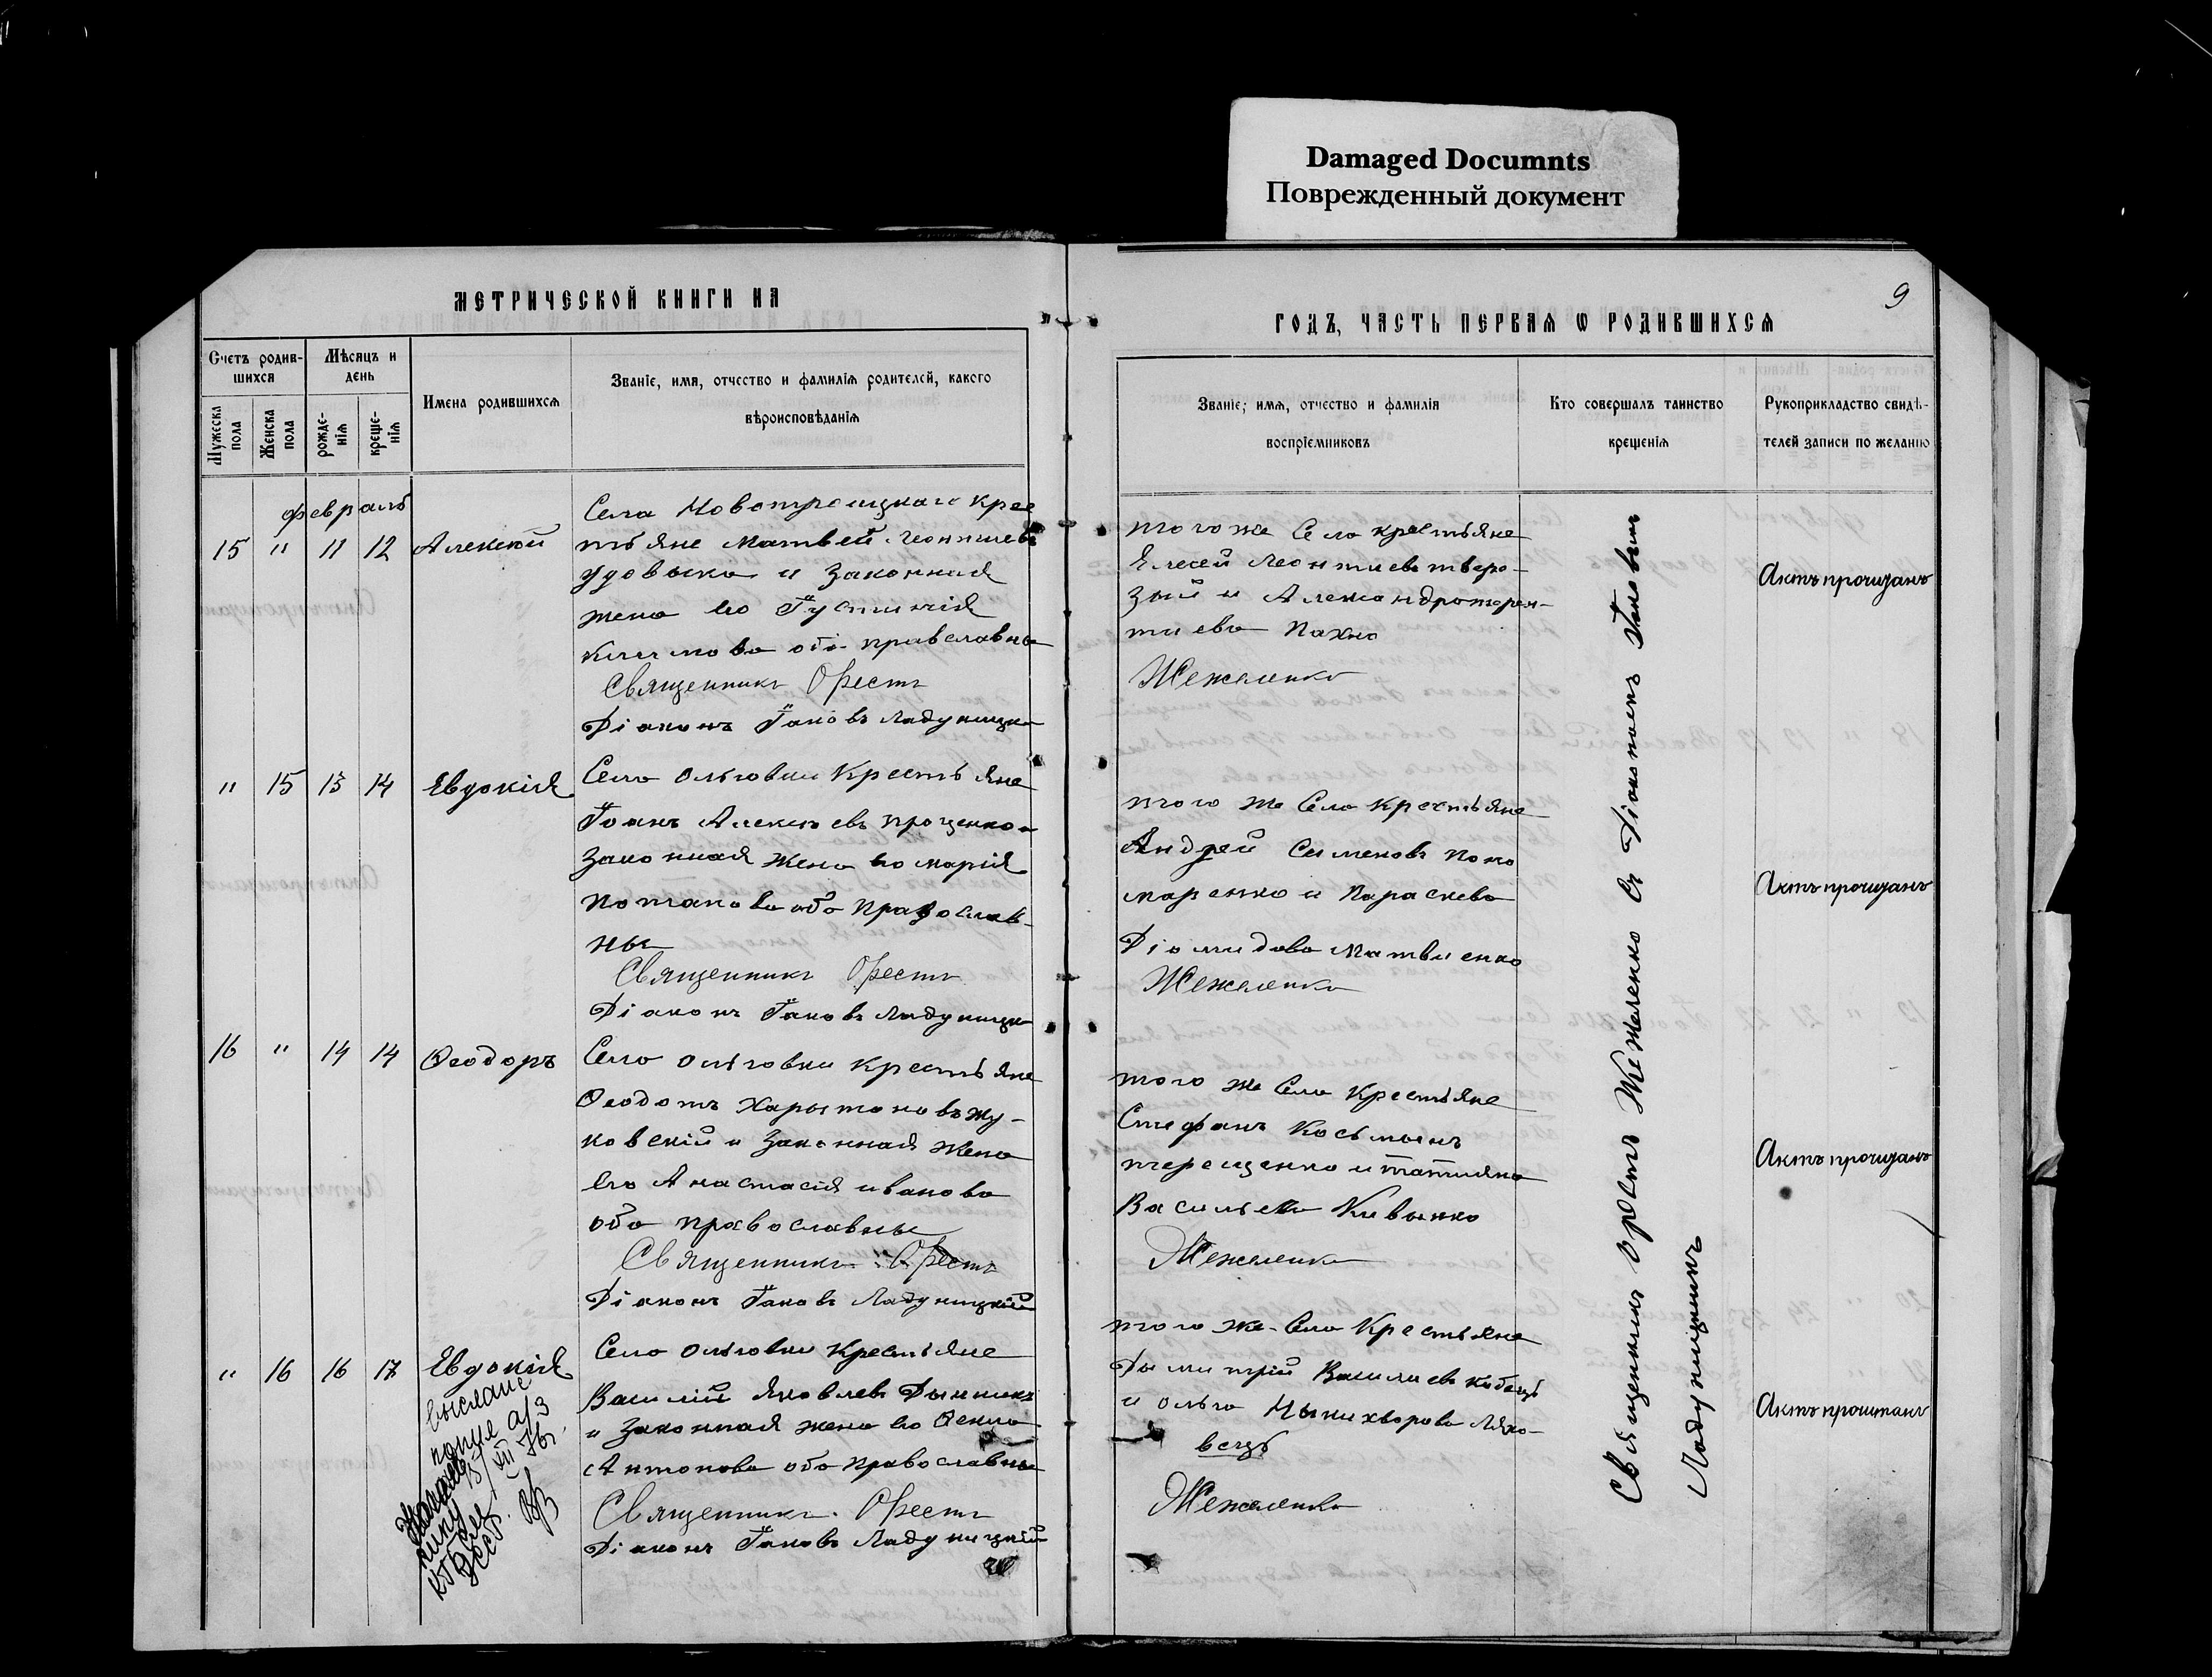 Damaged Documnts
Поврежденный документ
9
МЕТРИЧЕСКОЙ КНИГИ НА
ГОДЪ, ЧАСТЬ ПЕРВАЯ Ѡ РОДИВШИХСЯ
Счетъ родив-
шихся
Мѣсяцъ и
день
Мужеска
пола
Женска
пола
рожде-
нія
креще-
нія
Имена родившихся
Званіе, имя, отчество и фамилія родителей, какого
вѣроисповѣданія
Званіе, имя, отчество и фамилія
воспріемниковъ
Кто совершалъ таинство
крещенія
Рукоприкладство свидѣ-
телей записи по желанію
февраль
15 " 11 12 Алексей
Села Новотроицкаго крес
тьяне Матвей Леонтиевъ
Удовыка и Законная
жена его Іустинія
Климова обі православны
Священникъ Орестъ
Діаконъ Іаковъ Ладуницки
того же Села крестьяне
Елесей Леонтиевъ
и Александра
тиева Пахно
Жежеленко
Актъ прочитанъ
" 15 13 14 Евдокія
Села Ольговки Крестьяне
Іоанъ Алексѣевъ Проценко и
Законная Жена его Марія
Потапова оба Православ-
ны
Священникъ Орестъ
Діаконъ Іаковъ Ладуницки
того же Села Крестьяне
Андрей Сименовъ Поно
маренко и Параскева
Діомидова Матвиенко
Жежеленко
Актъ прочитанъ
16 " 14 14 Ѳеодоръ
Села Ольговки Крестьяне
Ѳеодотъ Харытоновъ Жу-
ковскій и Законная Жена
его Анастасія иванова
оба православны
Священникъ Орестъ
Діаконъ Іаковъ Ладуницкій
того же Села Крестьяне
Стефанъ Косьминъ
терещенко и татіяна
Васильева Кивынко
Жежеленко
Актъ прочитанъ
" 16 16 17 Евдокія
Села Ольговки Крестьяне
Василій Яковлевъ Дынникъ
и Законная жена его Ѳекла
Антонова оба Православны
Священникъ Орестъ
Діаконъ Іаковъ Ладуницкій
того же Села Крестьяне
Дымитрій Василиевъ Кобецъ
и ольга Ныкихворова Ляхо-
вецъ
Жежеленко
Актъ прочитанъ
выслане
копия
Священникъ Орестъ Жежеленко съ Діакономъ Іаковымъ
Ладуницкимъ